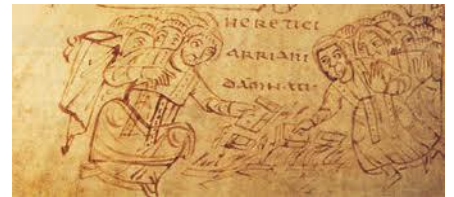 HERETICI
ARRIANI
DAMNATI